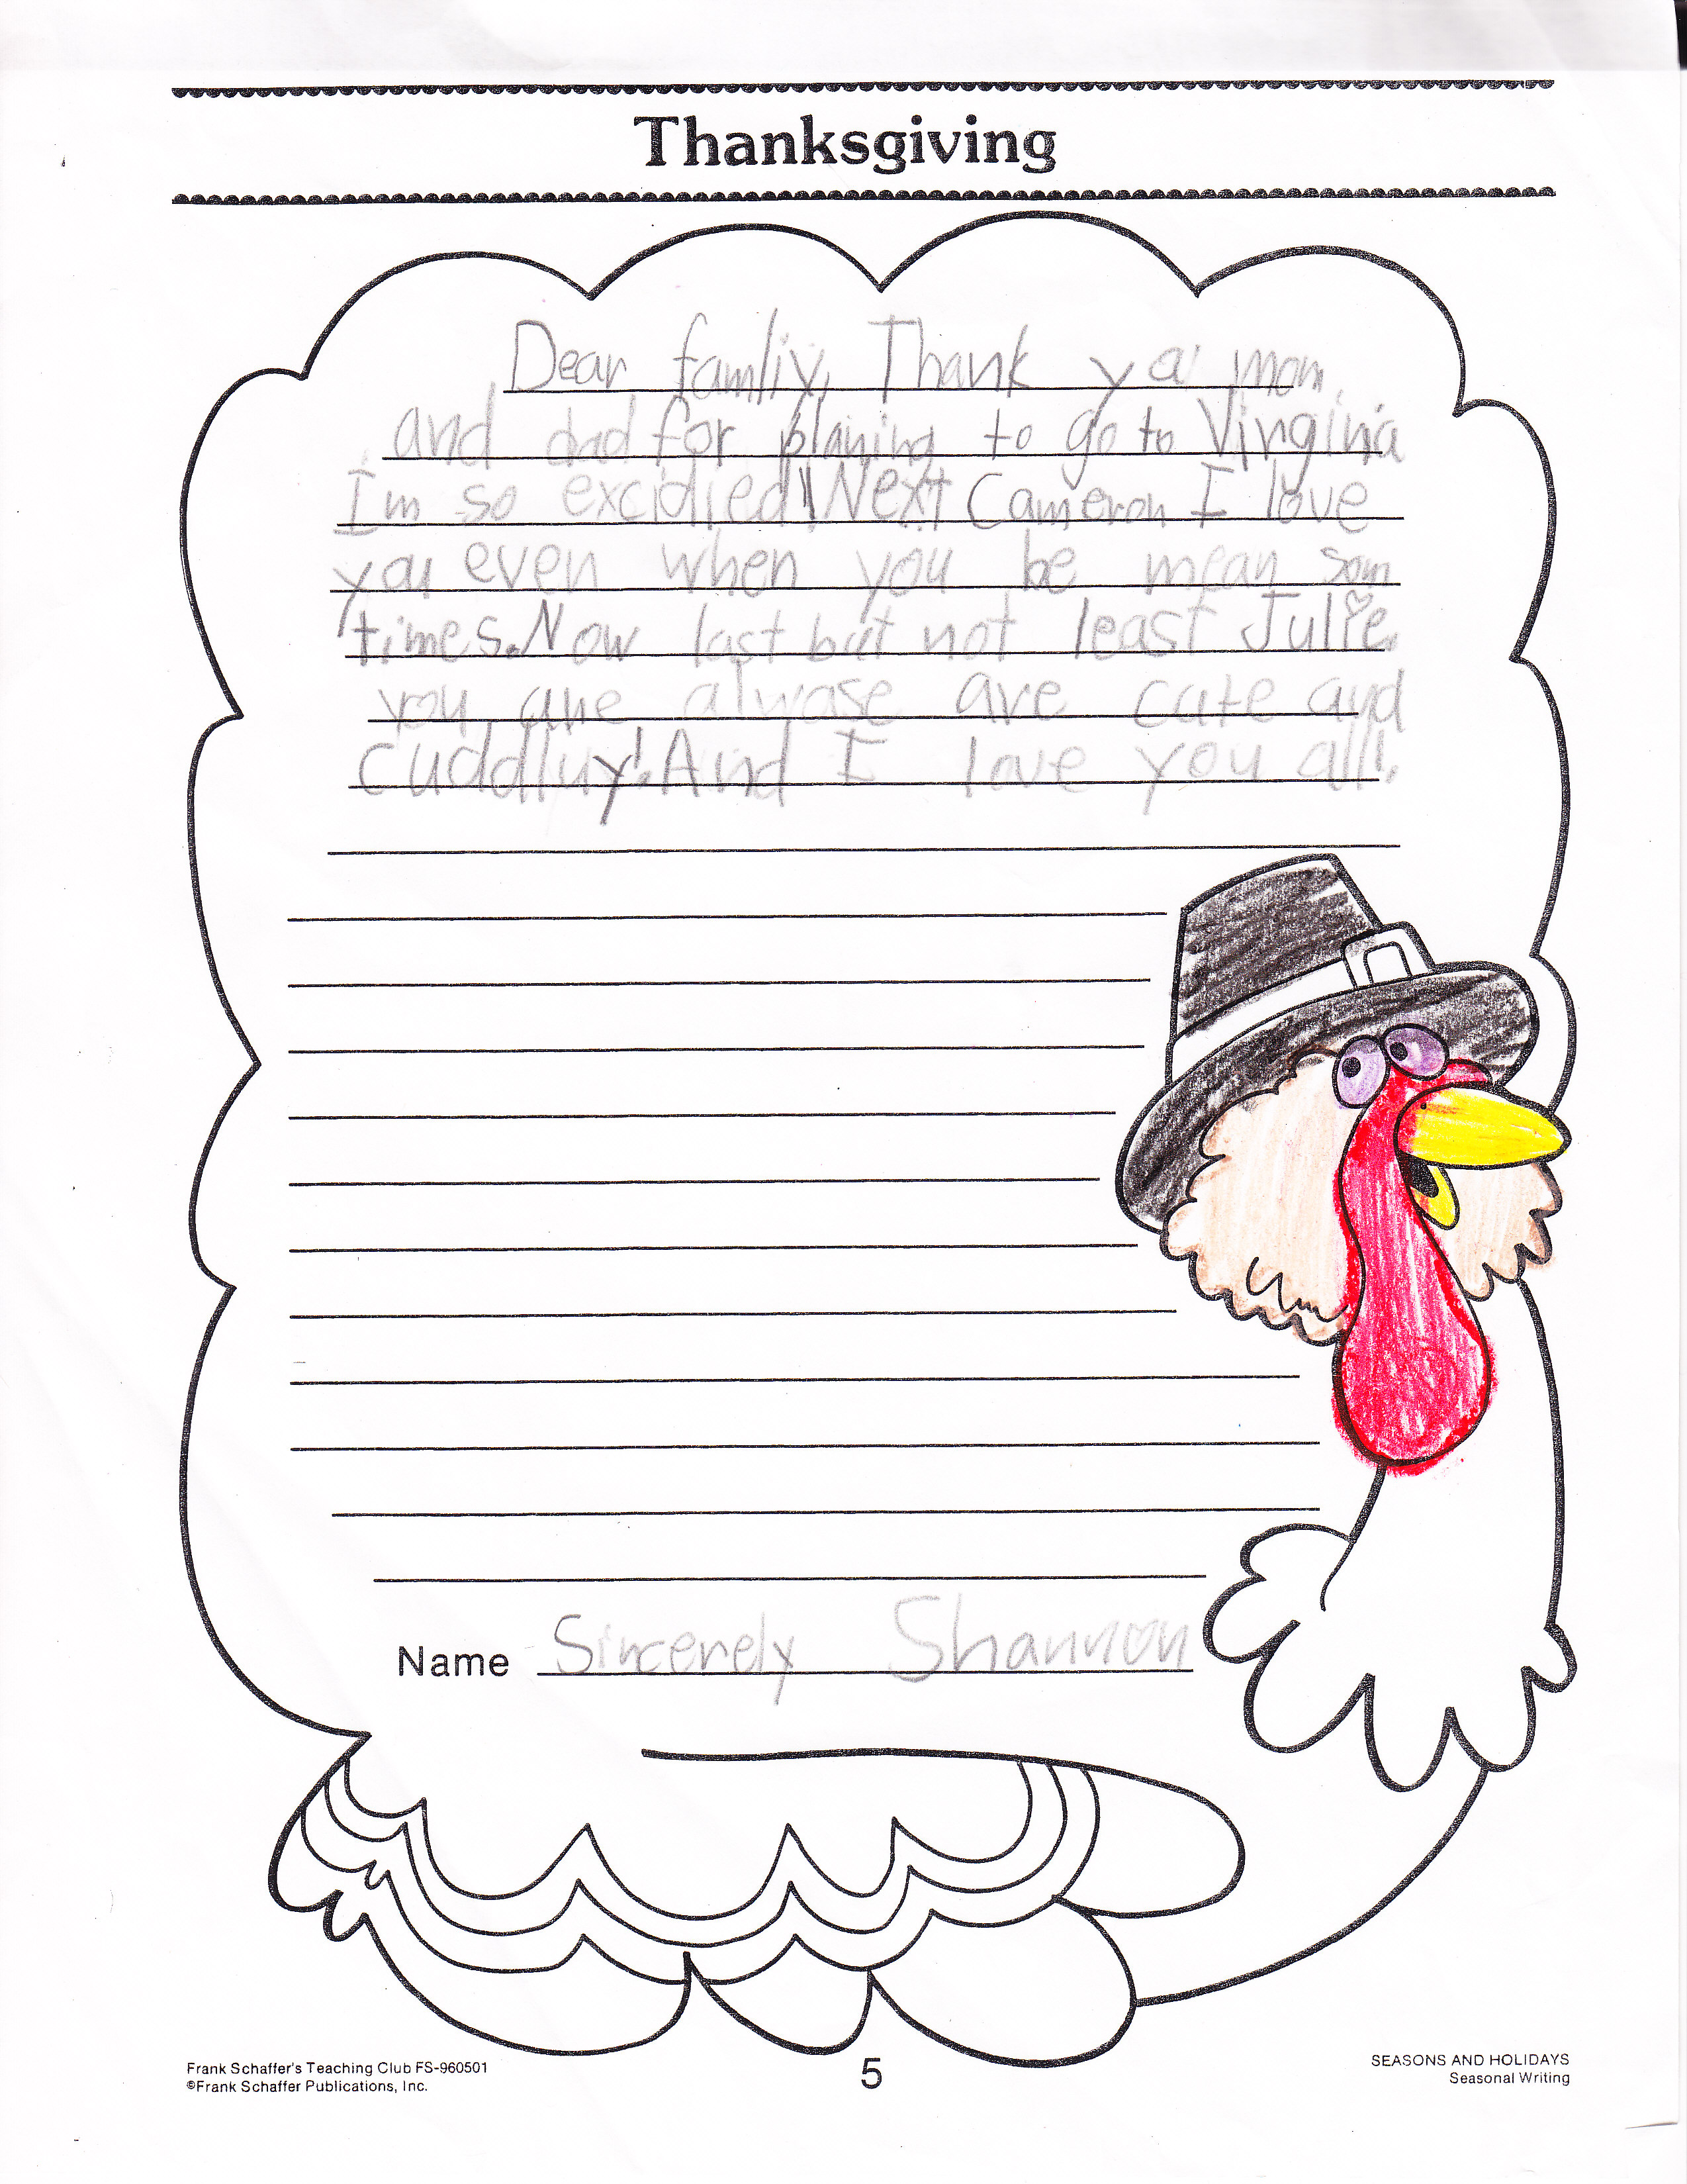 Thanksgiving
Dear famliy, Thank ya mom
and dad for planing to go to Virginia
I'm so excidied!! Next Cameron I love
you even when you be mean som
times. Now last but not least Julie.
you are alwase are cute and
cuddluy! And I love you all!
Name Sincerely Shannon
Frank Schaffer's Teaching Club FS-960501
©Frank Schaffer Publications, Inc.
5
SEASONS AND HOLIDAYS
Seasonal Writing